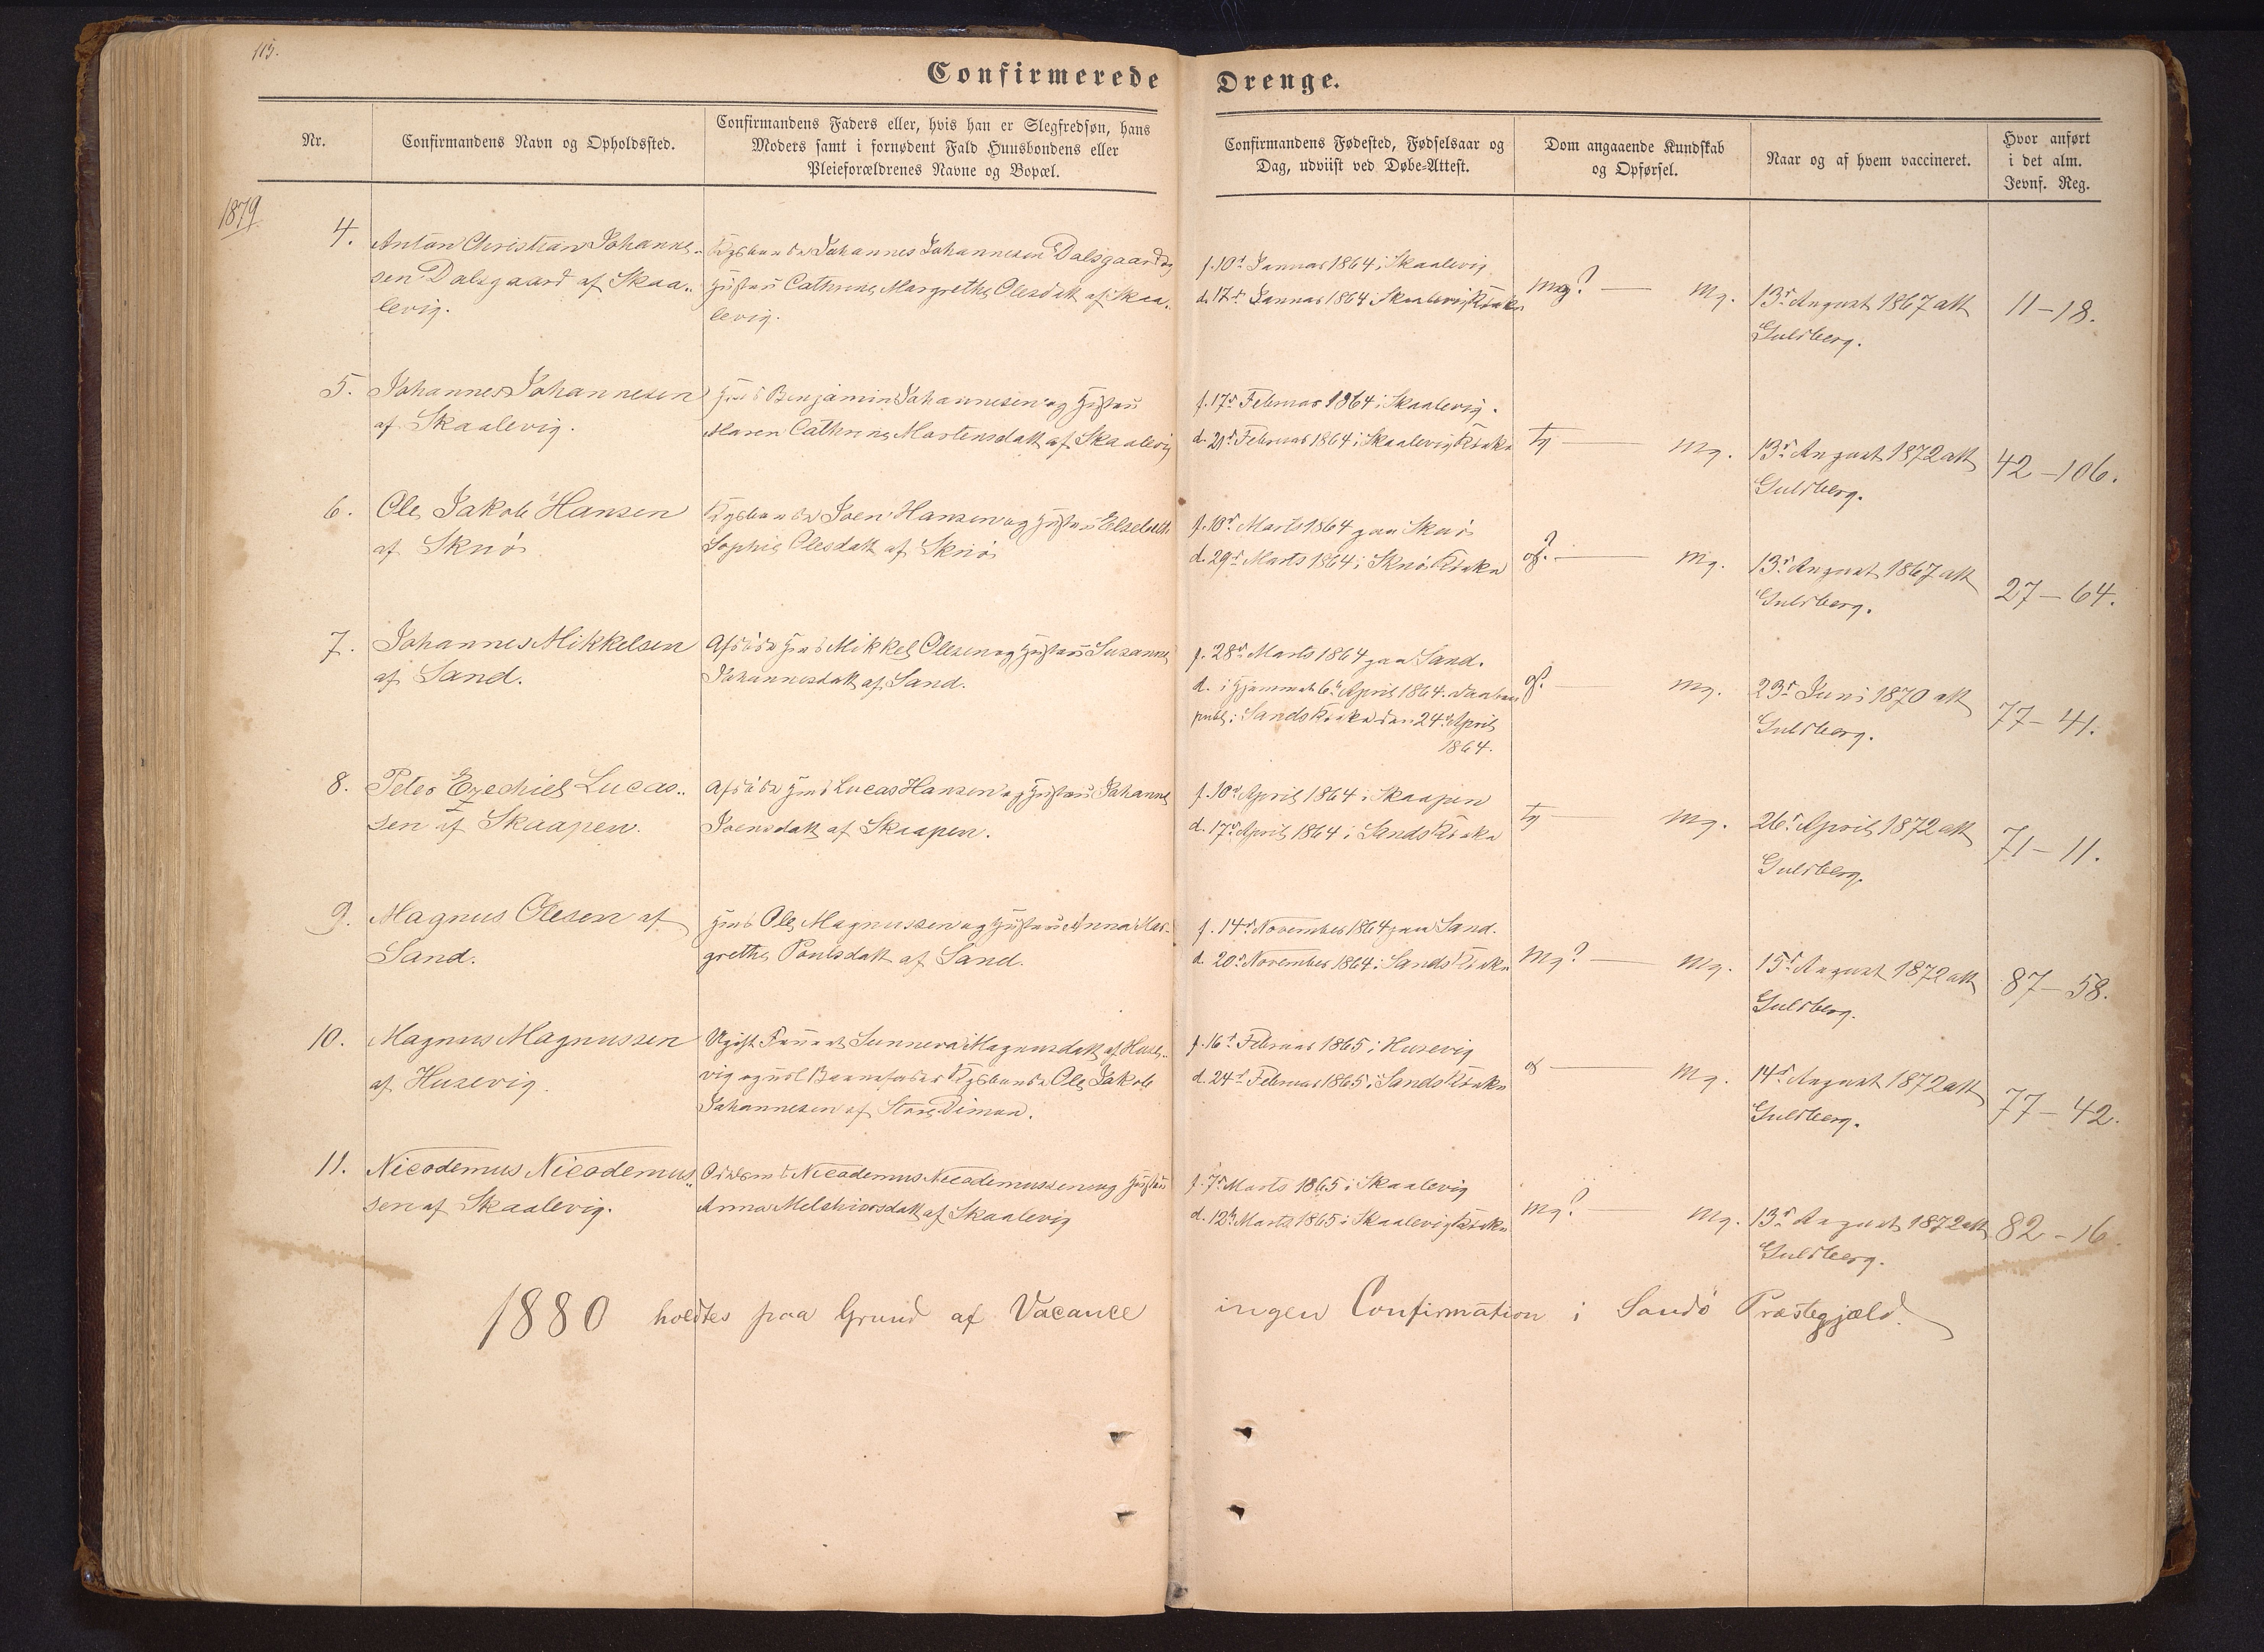 115.
Confirmerede Drenge.
Nr.
Confirmandens Navn og Opholdssted.
Confirmandens Faders eller, hvis han er Slegfredsøn, hans
Moders samt i fornødent Fald Huusbondens eller
Pleieforældrenes Navne og Bopæl.
Confirmandens Fødested, Fødselsaar og
Dag, udviist ved Døbe-Attest.
Dom angaaende Kundskab
og Opførsel.
Naar og af hvem vaccineret.
Hvor anført
i det alm.
Jevnf. Reg.
1879.
4.
Anton Christian Johannes-
sen Dalsgaard af Skaa-
levig.
Johannes Johannesen Dalsgaard og
Hustru Cathrine Margrethe Olesdatt af Skaa-
levig.
f. 10d Januar 1864 i Skaalevig
d. 17d Januar 1864 i Skaalevig Kirke
mg? — mg.
13d August 1867 att
Guldberg.
11-18.
5.
Johannes Johannesen
af Skaalevig.
Benjamin Johannesen og Hustru
Maren Cathrine Mortensdatt af Skaalevig
f. 17d Februar 1864 i Skaalevig.
d. 21d Februar 1864 i Skaalevig Kirke
tg — mg.
13d August 1872 att
Guldberg.
42-106.
6.
Ole Jakob Hansen
af Skuø
Joen Hansen og Hustru Elsebeth
Sophie Olesdatt af Skuø
f. 10d Marts 1864 paa Skuø
d. 29d Marts 1864 i Skuø Kirke
g? — mg.
13d August 1867 att
Guldberg.
27-64.
7.
Johannes Mikkelsen
af Sand.
Afdøde Mikkel Olesen og Hustru Susanne
Johannesdatt af Sand.
f. 28d Marts 1864 paa Sand.
d. i Hjemmet 6d April 1864.
publ. i Sands Kirke den 24d April
1864.
g. — mg.
23d Juni 1870 att
Guldberg.
77-41.
8.
Peter Ezechiel Lucas-
sen af Skaapen.
Afdøde Lucas Hansen og Hustru Johanne
Joensdatt af Skaapen.
f. 10d April 1864 i Skaapen
d. 17d April 1864 i Sands Kirke
tg — mg.
26d April 1872 att
Guldberg.
71-11.
9.
Magnus Olesen af
Sand.
Ole Magnussen og Hustru Anna Mar-
grethe Poulsdatt af Sand.
f. 14d November 1864 paa Sand.
d. 20d November 1864 i Sands Kirke
mg? — mg.
15d August 1872 att
Guldberg.
87-58.
10.
Magnus Magnussen
af Husevig.
Ugift Sunneva Magnusdatt af Huse-
vig og udl Barnefader Ole Jakob
Johannesen af Store Dimon.
f. 16d Februar 1865 i Husevig
d. 24d Februar 1865 i Sands Kirke
g — mg.
14d August 1872 att
Guldberg.
77-42.
11.
Nicodemus Nicodemus-
sen af Skaalevig.
Nicodemus Nicodemussen og Hustru
Anna Melchiorsdatt af Skaalevig
f. 7d Marts 1865 i Skaalevig
d. 12d Marts 1865 i Skaalevig Kirke
mg? — mg.
13d August 1872 att
Guldberg.
82-16.
1880 holdtes paa Grund af Vacance ingen Confirmation i Sandø Præstegjæld.